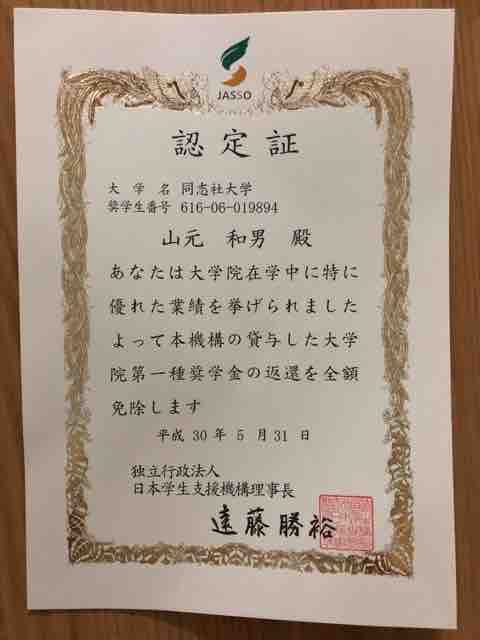 JASSO
認定証
大学名 同志社大学
奨学生番号 616-06-019894
山元 和男 殿
あなたは大学院在学中に特に
優れた業績を挙げられました
よって本機構の貸与した大学
院第一種奨学金の返還を全額
免除します
平成30年5月31日
独立行政法人
日本学生支援機構理事長
遠藤勝裕